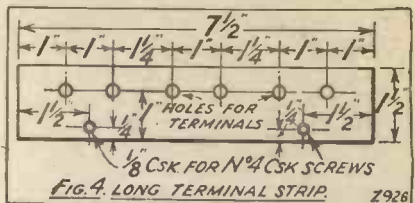 7 1/2"
1" 1" 1 1/4" 1" 1 1/4" 1" 1"
1 1/2" 1/4" 1" HOLES FOR TERMINALS 1/4" 1 1/2" 1 1/2"
1/8" CSK. FOR Nº4 CSK SCREWS
FIG. 4. LONG TERMINAL STRIP. Z926